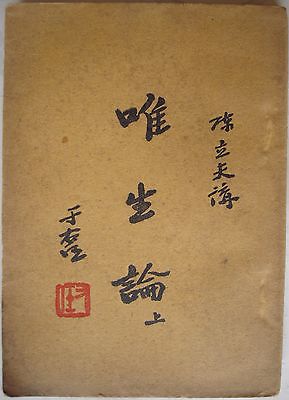 陳立夫講
唯生論
上
于右任